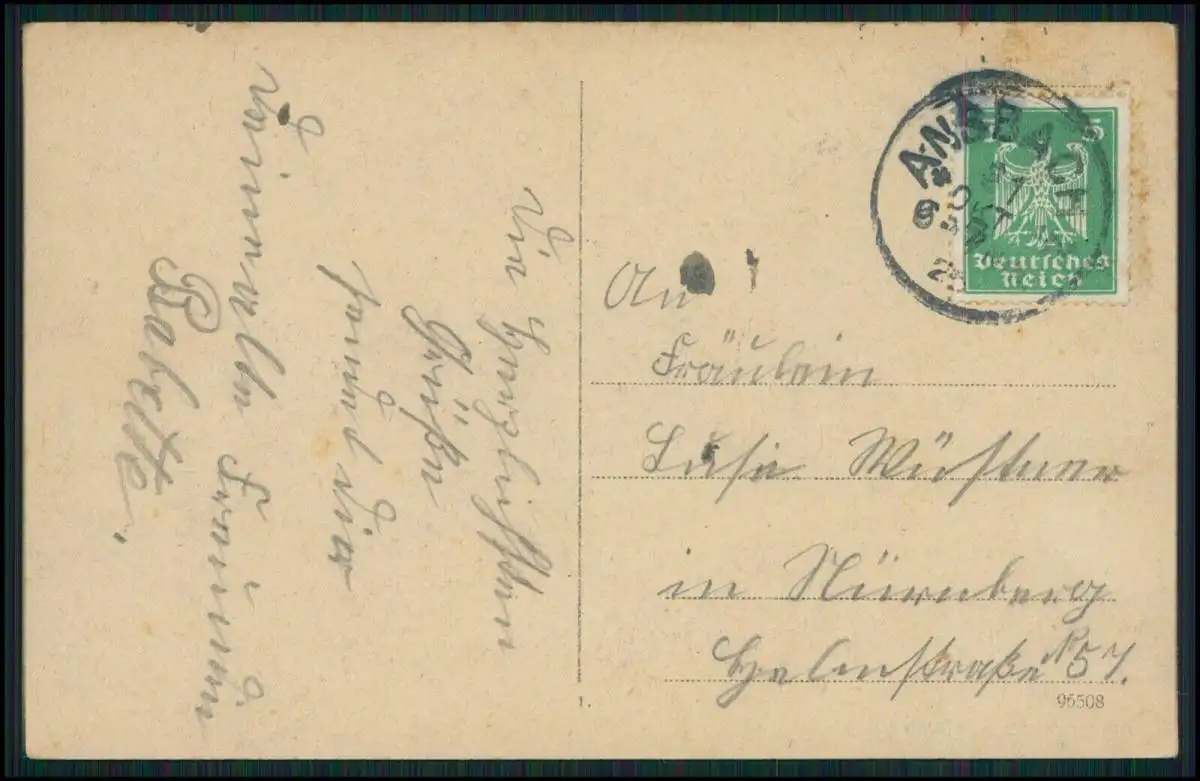 Die herzlichsten
Grüße
sendet Dir
Deine alte Freundin
Babette.
ANSBACH
5
Deutsches
Reich
An
Fräulein
Wüstner
in Nürnberg
Nº 57.
1.
96508